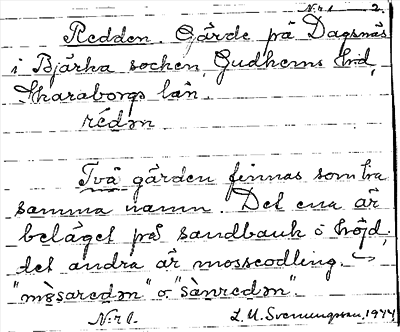 Nr 1 2.
Redden. Gärde på Dagsnäs
i Bjärka socken, Gudhems hd,
Skaraborgs län.
rédən
Två gärden finnas som ha
samma namn. Det ena är
beläget på sandbank o höjd,
det andra är mosseodling.
"mòsaredən" o "sànredən".
Nr 6. L. U. Svenungsson, 1944